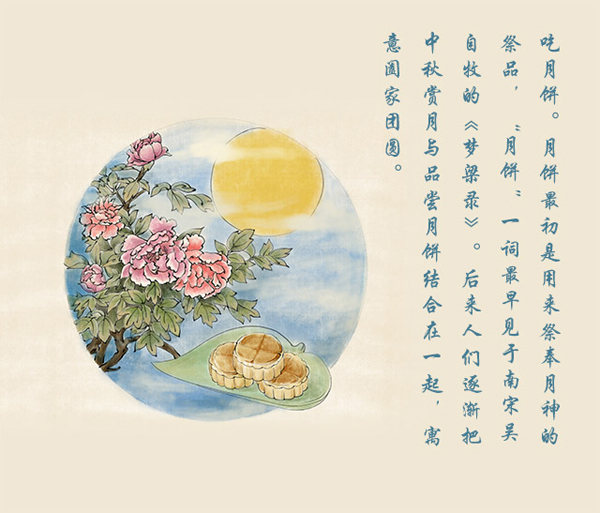 吃月饼。月饼最初是用来祭奉月神的
祭品，“月饼”一词最早见于南宋吴
自牧的《梦梁录》。后来人们逐渐把
中秋赏月与品尝月饼结合在一起，寓
意阖家团圆。